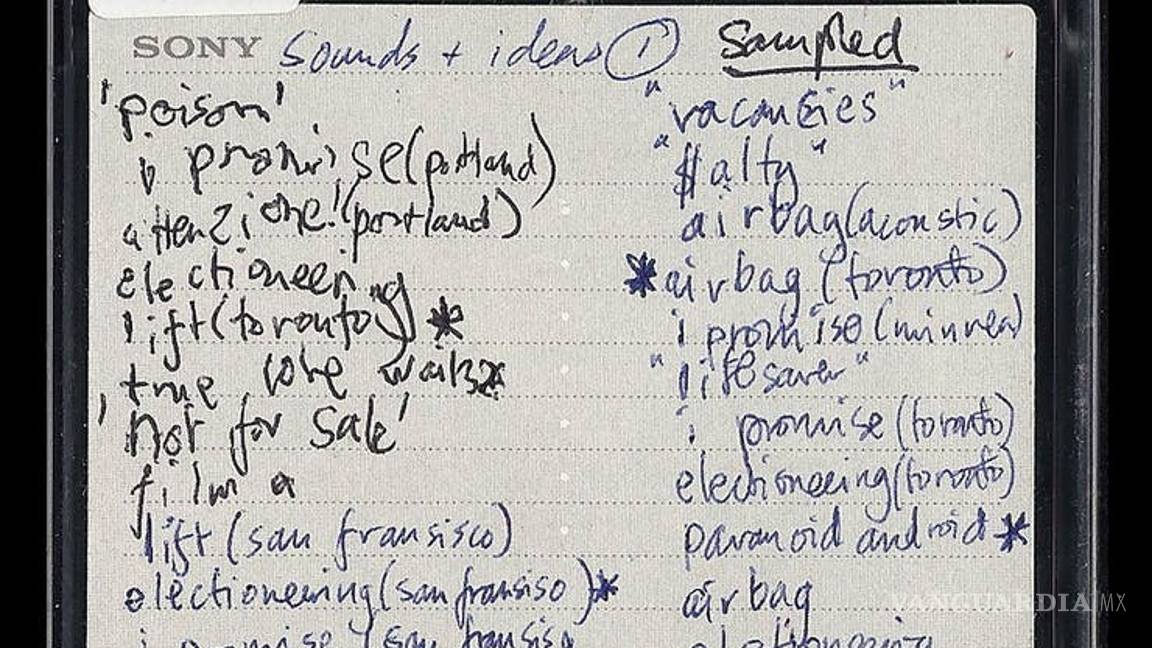 SONY sounds + ideas ① sampled
'poison'
i promise (portland)
attenzione! (portland)
electioneering
lift (toronto) *
true love waits *
'not for sale'
film a
lift (san fransisco)
electioneering (san fransiso) *
i promise (san fransisa
"vacancies"
"$alty"
airbag (acoustic)
* airbag (toronto)
i promise (minnea)
"lifesaver"
i promise (toronto)
electioneering (toronto)
paranoid android *
airbag
VANGUARDIA|MX